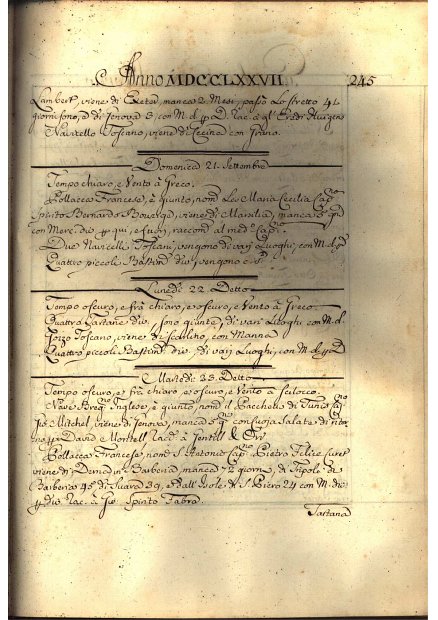 Anno MDCCLXXVII
245
Lambert, viene di Exeter, manca 2 Mesi, passò lo Stretto 41
giorni sono, e di Genova 3, con M. d. Rac. a gl' Eredi
Navicello Toscano, viene di Cecina con Grano.
Domenica 21. Settembre
Tempo chiaro, e Vento à Greco.
Pollacca Francese, è giunto, nom. Les Maria Cecilia Cap.no
Spirito Bernardo viene di Marsilia, manca
con Merc. div. qui, e fuori, raccom. al med.o Cap.no
Due Navicelli Toscani, vengono di varj Luoghi, con M. d.
Quattro piccoli Bastim. div. vengono
Lunedì 22 Detto
Tempo oscuro, e frà chiaro, e oscuro, e Vento à Greco.
Quattro Tartane div. sono giunte, di varj Luoghi con M. d.
Gozzo Toscano, viene di con Manna
Quattro piccoli Bastim. div. di varj Luoghi, con M. d.
Martedì 23 Detto
Tempo oscuro, e frà chiaro, e oscuro, e Vento à Scilocco.
Nave Inglese, è giunto, nom. il Pacchetto di Tunis
Gio. Mitchel, viene di Genova, manca con sua Salate di ritor
no, David Rac. à Gentil & Orr
Pollacca Francese, nom. S. Antonio Cap.no Pietro Felice
viene di Derna in Barberia, manca 72 giorni, di Tripoli di
Barberia 45, di 39, e dall' Isole di S. Piero 24 con M. di
div. Rac. à Gio. Spirito Fabra.
Tartana